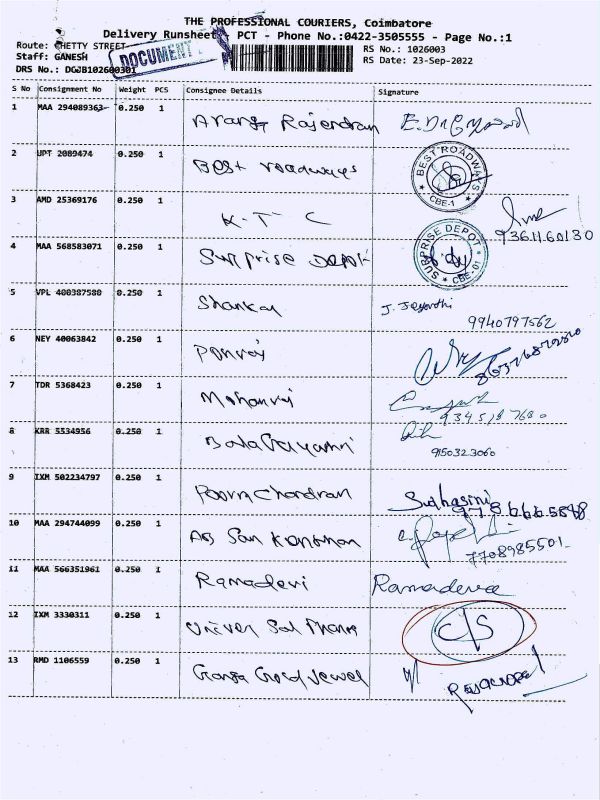 THE PROFESSIONAL COURIERS, Coimbatore
Delivery Runsheet PCT - Phone No.:0422-3505555 - Page No.:1
Route: CHETTY STREET RS No.: 1026003
Staff: GANESH DOCUMENT RS Date: 23-Sep-2022
DRS No.: DGJB102600301
S No Consignment No Weight PCS Consignee Details Signature
1 MAA 294089363 0.250 1 Rajendran
2 UPT 2089474 0.250 1 Best roadways BEST ROADWAYS CBE-1
3 AMD 25369176 0.250 1 K.T C 9361160130
4 MAA 568583071 0.250 1 Surprise Depot SURPRISE DEPOT CBE-01
5 VPL 400387580 0.250 1 Shankar J. Jayanthi
9940797562
6 NEY 40063842 0.250 1 Ponraj
7 TDR 5368423 0.250 1 Mohanraj
8 KRR 5534956 0.250 1 Bala Gayathri
9150323060
9 IXM 502234797 0.250 1 Poorna Chandran Suhasini
9786665848
10 MAA 294744099 0.250 1
7708985501
11 MAA 566351961 0.250 1 Ramadevi Ramadevi
12 IXM 3330311 0.250 1 Univer Sal Pharma C/S
13 RMD 1106559 0.250 1 Ganga Gold Jewel